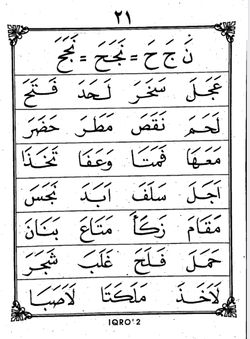 ٢١
نَ جَ حَ = نَجَحَ = نَجَحَ
عَجَلَ سَخَرَ لَحَدَ فَتَحَ
لَحَمَ نَقَصَ مَطَرَ حَضَرَ
مَعَهَا قَمَتَا وَعَفَا تَخَذَا
اَجَلَ سَلَفَ اَبَدَ نَجَسَ
مَقَامَ زَكَأَ مَتَاعَ بَنَانَ
حَمَلَ فَلَحَ غَلَبَ شَجَرَ
لَاَخَذَ مَلَكَتَا لَاَصَبَا
IQRO'2